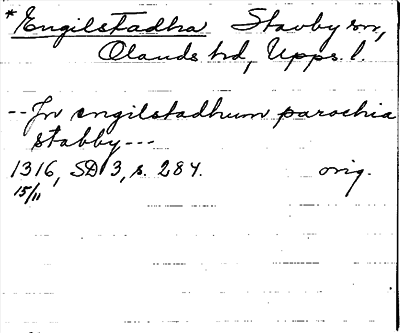 *Engilstadha Stavby sn,
Olands hd, Upps. l.
--Jn engilstadhum parochia
stabby---
1316, SD 3, s. 284. orig.
15/11